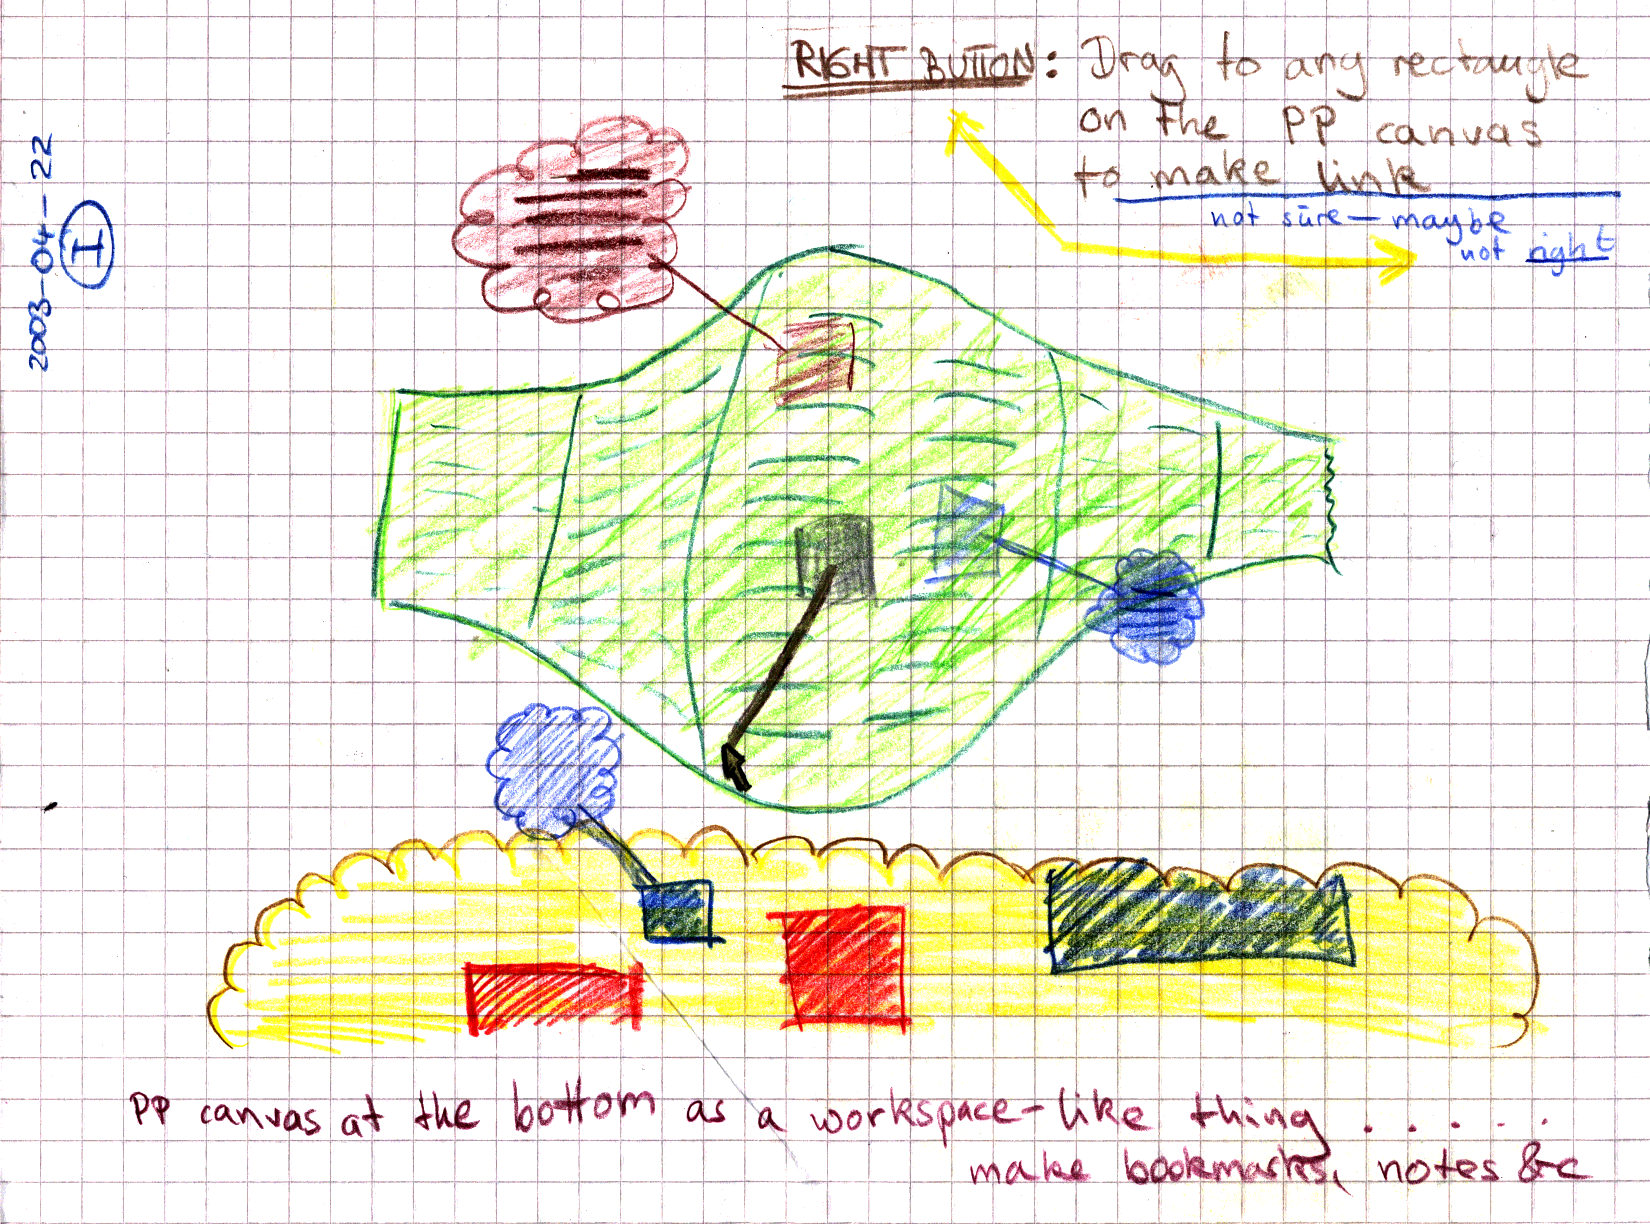 2003-04-22
I
RIGHT BUTTON: Drag to any rectangle
on the PP canvas
to make link
not sure – maybe
not right
PP canvas at the bottom as a workspace-like thing . . . . .
make bookmarks, notes &c